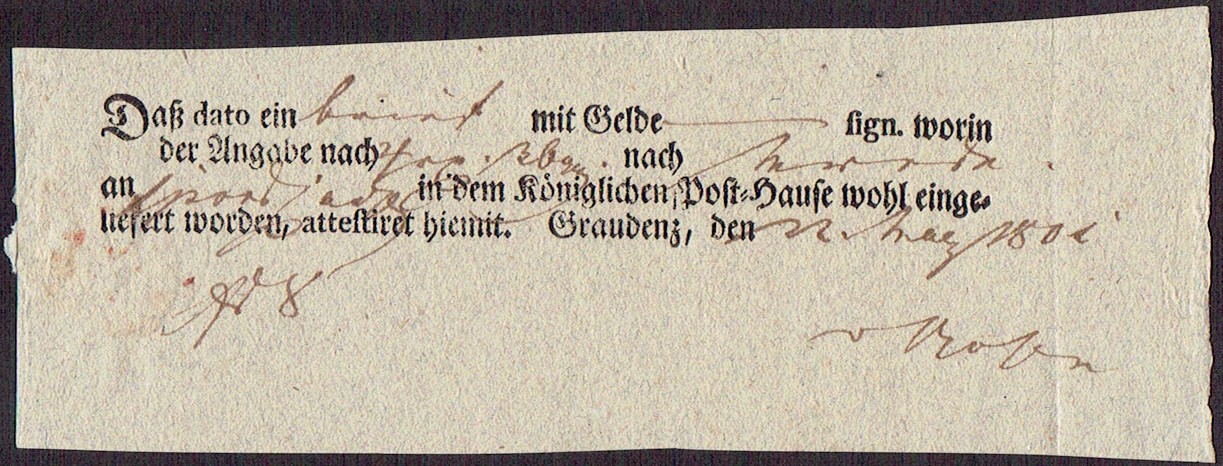 Daß dato ein brief mit Gelde sign. worin
der Angabe nach nach
an in dem Königlichen Post-Hause wohl einge-
liefert worden, attestiret hiemit. Graudenz, den 22. May 1801
v Rosen